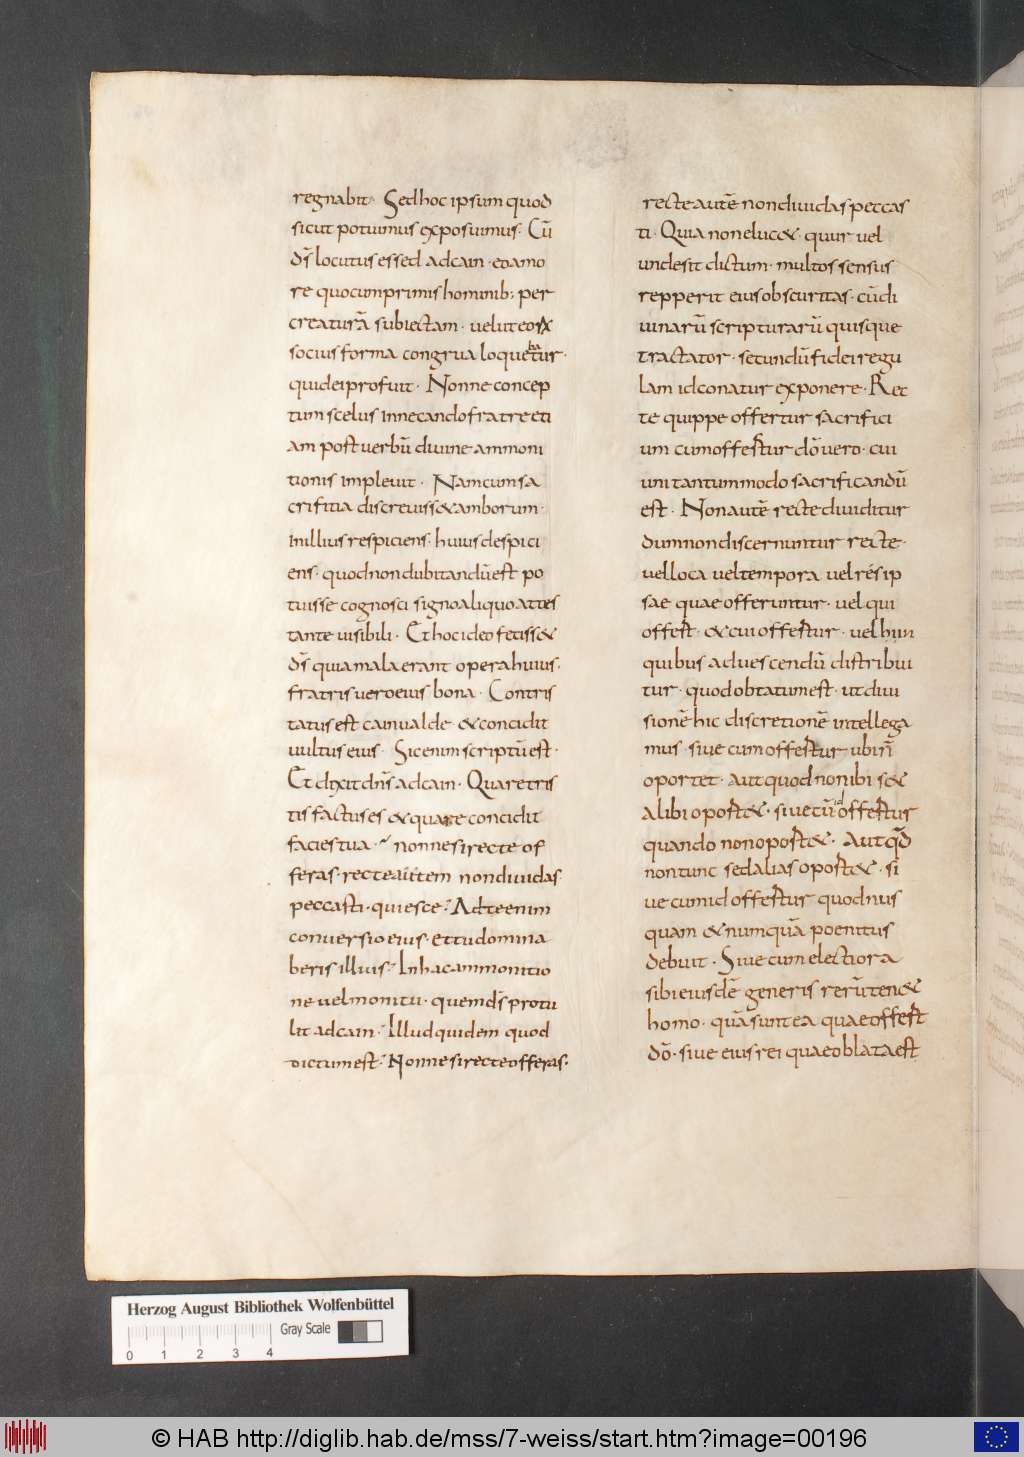 regnabit· Sed hoc ipsum quod
sicut potuimus exposuimus· Cū
d̄s locutus essed ad cain· eo amo
re quo cum primis hominib; per
creaturā subiectam· velut eorx
socius forma congrua loquebatur·
quid ei profuit· Nonne concep
tum scelus in necando fratre eti
am post verbū divine ammoni
tionis implevit· Nam cum sa
crifitia discreviss& amborum·
in illius respiciens· huius despici
ens· quod non dubitandū est po
tuisse cognosci signo aliquo attes
tante visibili· Et hoc ideo feciss&
d̄s quia mala erant opera huius·
fratris vero eius bona· Contris
tatus est cain valde & concidit
vultus eius· Sic enim scriptū est·
Et dixit dn̄s ad cain· Quare tris
tis factus es & quare concidit
facies tua· nonne si recte of
feras· recte autem non dividas·
peccasti· quiesce· Ad te enim
conversio eius· et tu domina
beris illius· In hac ammonitio
ne vel monitu· quem d̄s protu
lit ad cain· Illud quidem quod
dictum est· Nonne si recte offeras·
recte autē non dividas peccas
ti· Quia non eluc&· quur vel
unde sit dictum· multos sensus
repperit eius obscuritas· cū di
vinarū scripturarū quisque
tractator· secundū fidei regu
lam id conatur exponere· Rec
te quippe offertur sacrifici
um cum offertur dō vero· cui
uni tantummodo sacrificandū
est· Non autē recte dividitur
dum non discernuntur recte·
vel loca vel tempora vel res ip
sae quae offeruntur· vel qui
offert· & cui offertur· vel hun
quibus ad vescendū distribui
tur· quod obtatum est· ut divi
sionē hic discretionē intellega
mus· sive cum offertur ubi n̄
oportet· aut quod non ibi s&
alibi oport&· sive cū id offertur
quando non oport&· Aut qđ
non tunc sed alias oport&· si
ve cum id offertur quod nus
quam & numquā poenitus
debuit· Sive cum electiora
sibi eiusdē generis rerū ten&
homo· quā sunt ea quae offert
dō· sive eius rei quae oblata est
Herzog August Bibliothek Wolfenbüttel
Gray Scale
0 1 2 3 4
© HAB http://diglib.hab.de/mss/7-weiss/start.htm?image=00196